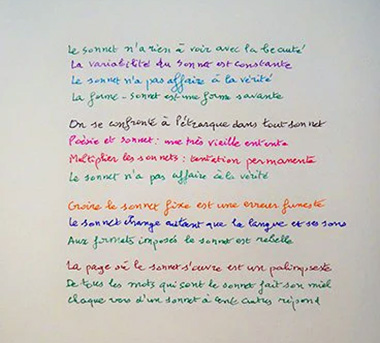 Le sonnet n'a rien à voir avec la beauté
La variabilité du sonnet est constante
Le sonnet n'a pas affaire à la vérité
La forme-sonnet est une forme savante
On se confronte à Pétrarque dans tout sonnet
Poésie et sonnet : une très vieille entente
Multiplier les sonnets : tentation permanente
Le sonnet n'a pas affaire à la vérité
Croire le sonnet fixe est une erreur funeste
Le sonnet change autant que la langue et ses sons
Aux formats imposés le sonnet est rebelle
La page où le sonnet s'ouvre est un palimpseste
De tous les mots qui sont le sonnet fait son miel
Chaque vers d'un sonnet à cent autres répond